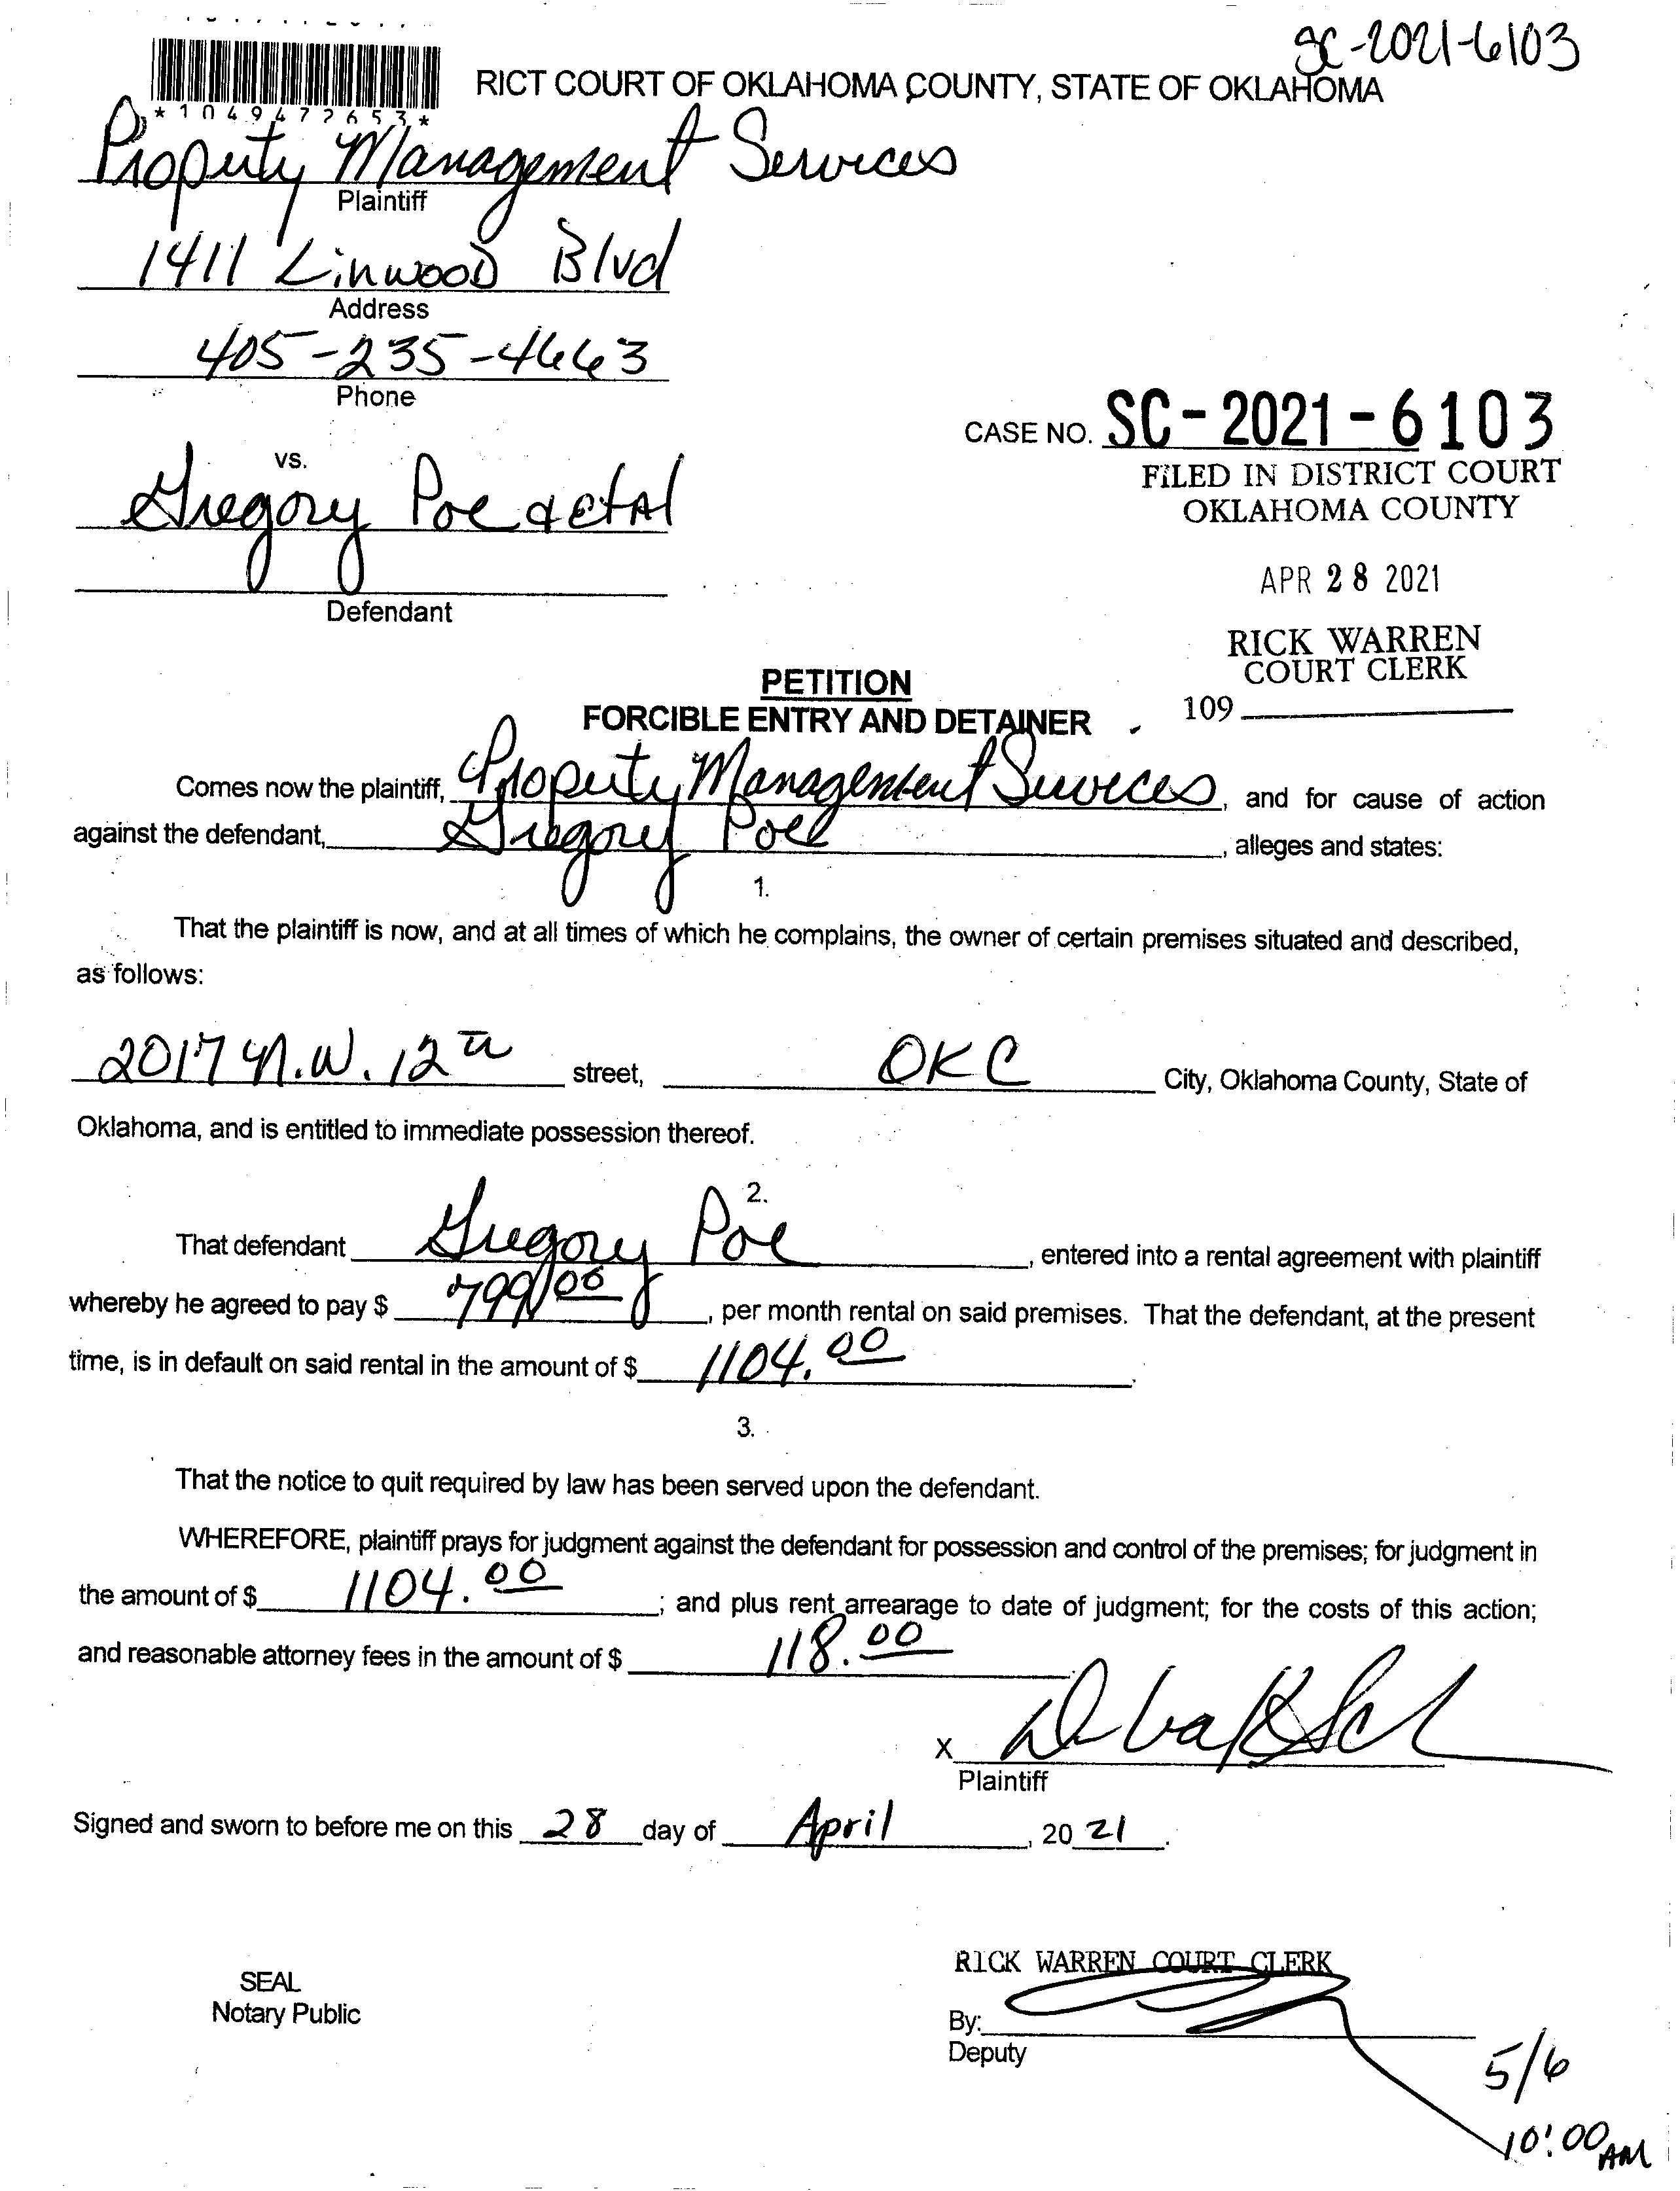 SC-2021-6103
RICT COURT OF OKLAHOMA COUNTY, STATE OF OKLAHOMA
*1049472653*
Property Management Services
Plaintiff
1411 Linwood Blvd
Address
405-235-4663
Phone
CASE NO. SC-2021-6103
FILED IN DISTRICT COURT
OKLAHOMA COUNTY
vs.
Gregory Poe & etAl
APR 28 2021
Defendant
RICK WARREN
COURT CLERK
109
PETITION
FORCIBLE ENTRY AND DETAINER
Comes now the plaintiff, Property Management Services, and for cause of action
against the defendant, Gregory Poe, alleges and states:
1.
That the plaintiff is now, and at all times of which he complains, the owner of certain premises situated and described,
as follows:
2017 N.W. 12th street, OKC City, Oklahoma County, State of
Oklahoma, and is entitled to immediate possession thereof.
2.
That defendant Gregory Poe, entered into a rental agreement with plaintiff
whereby he agreed to pay $ 799.00, per month rental on said premises. That the defendant, at the present
time, is in default on said rental in the amount of $ 1104.00.
3.
That the notice to quit required by law has been served upon the defendant.
WHEREFORE, plaintiff prays for judgment against the defendant for possession and control of the premises; for judgment in
the amount of $ 1104.00; and plus rent arrearage to date of judgment; for the costs of this action;
and reasonable attorney fees in the amount of $ 118.00
X
Plaintiff
Signed and sworn to before me on this 28 day of April, 20 21.
RICK WARREN COURT CLERK
SEAL
Notary Public
By:
Deputy
5/6
10:00 AM